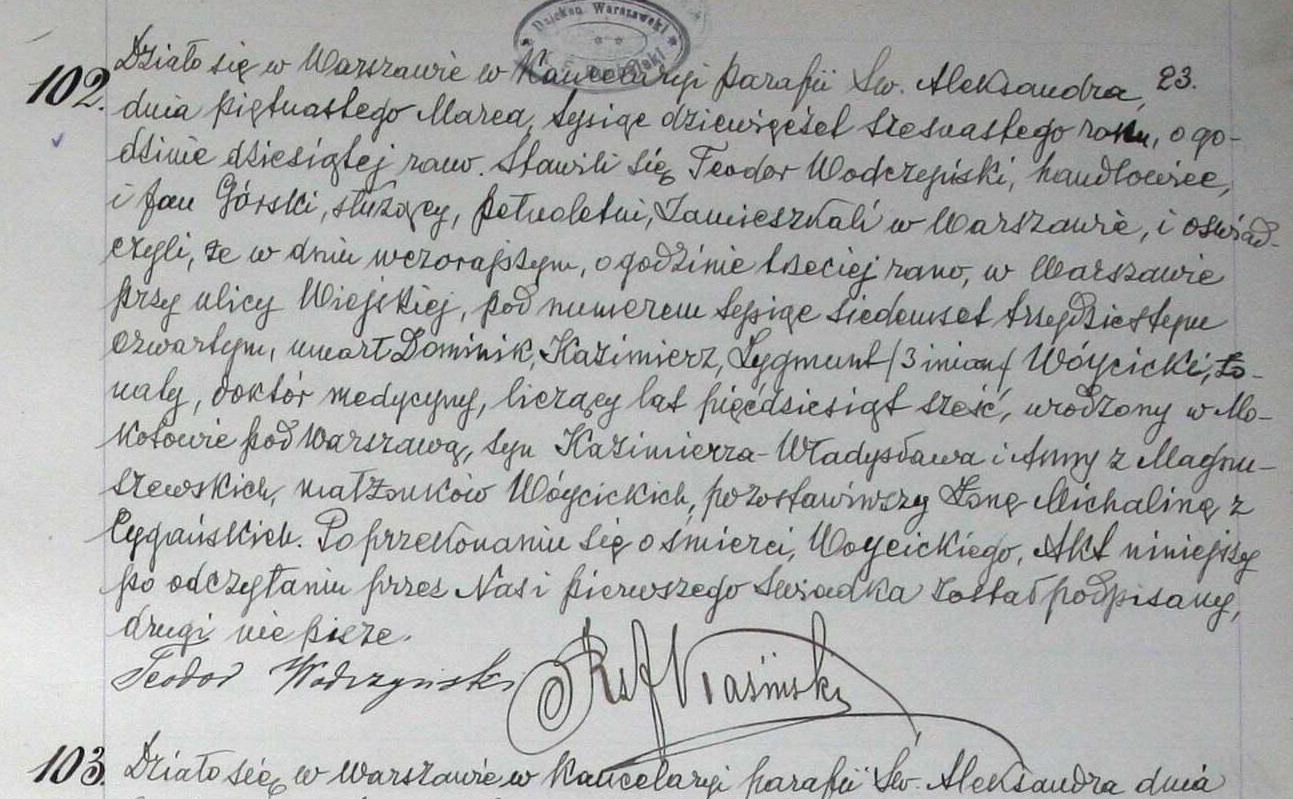 Dziekan Warszawski
102. Działo się w Warszawie w Kancelaryi parafii Św. Aleksandra, 23.
dnia piętnastego Marca, tysiąc dziewięćset szesnastego roku, o go-
dzinie dziesiątej rano. Stawili się Teodor Wodczyński, handlowiec,
i Jan Górski, służący, pełnoletni, zamieszkali w Warszawie, i oświad-
czyli, że w dniu wczorajszym, o godzinie trzeciej rano, w Warszawie
przy ulicy Wiejskiej, pod numerem tysiąc siedemset trzydziestym
czwartym, umarł Dominik, Kazimierz, Zygmunt /3 imion/ Wóycicki, żo-
naty, doktór medycyny, liczący lat pięćdziesiąt sześć, urodzony w Mo-
kotowie pod Warszawą, syn Kazimierza-Władysława i Anny z Magnu-
szewskich, małżonków Wóycickich, pozostawiwszy żonę Michalinę z
Cygańskich. Po przekonaniu się o śmierci, Woycickiego, Akt niniejszy
po odczytaniu przez Nas i pierwszego świadka został podpisany,
drugi nie pisze.
Teodor Wodczyński
103. Działo się w Warszawie w Kancelaryi parafii Św. Aleksandra dnia